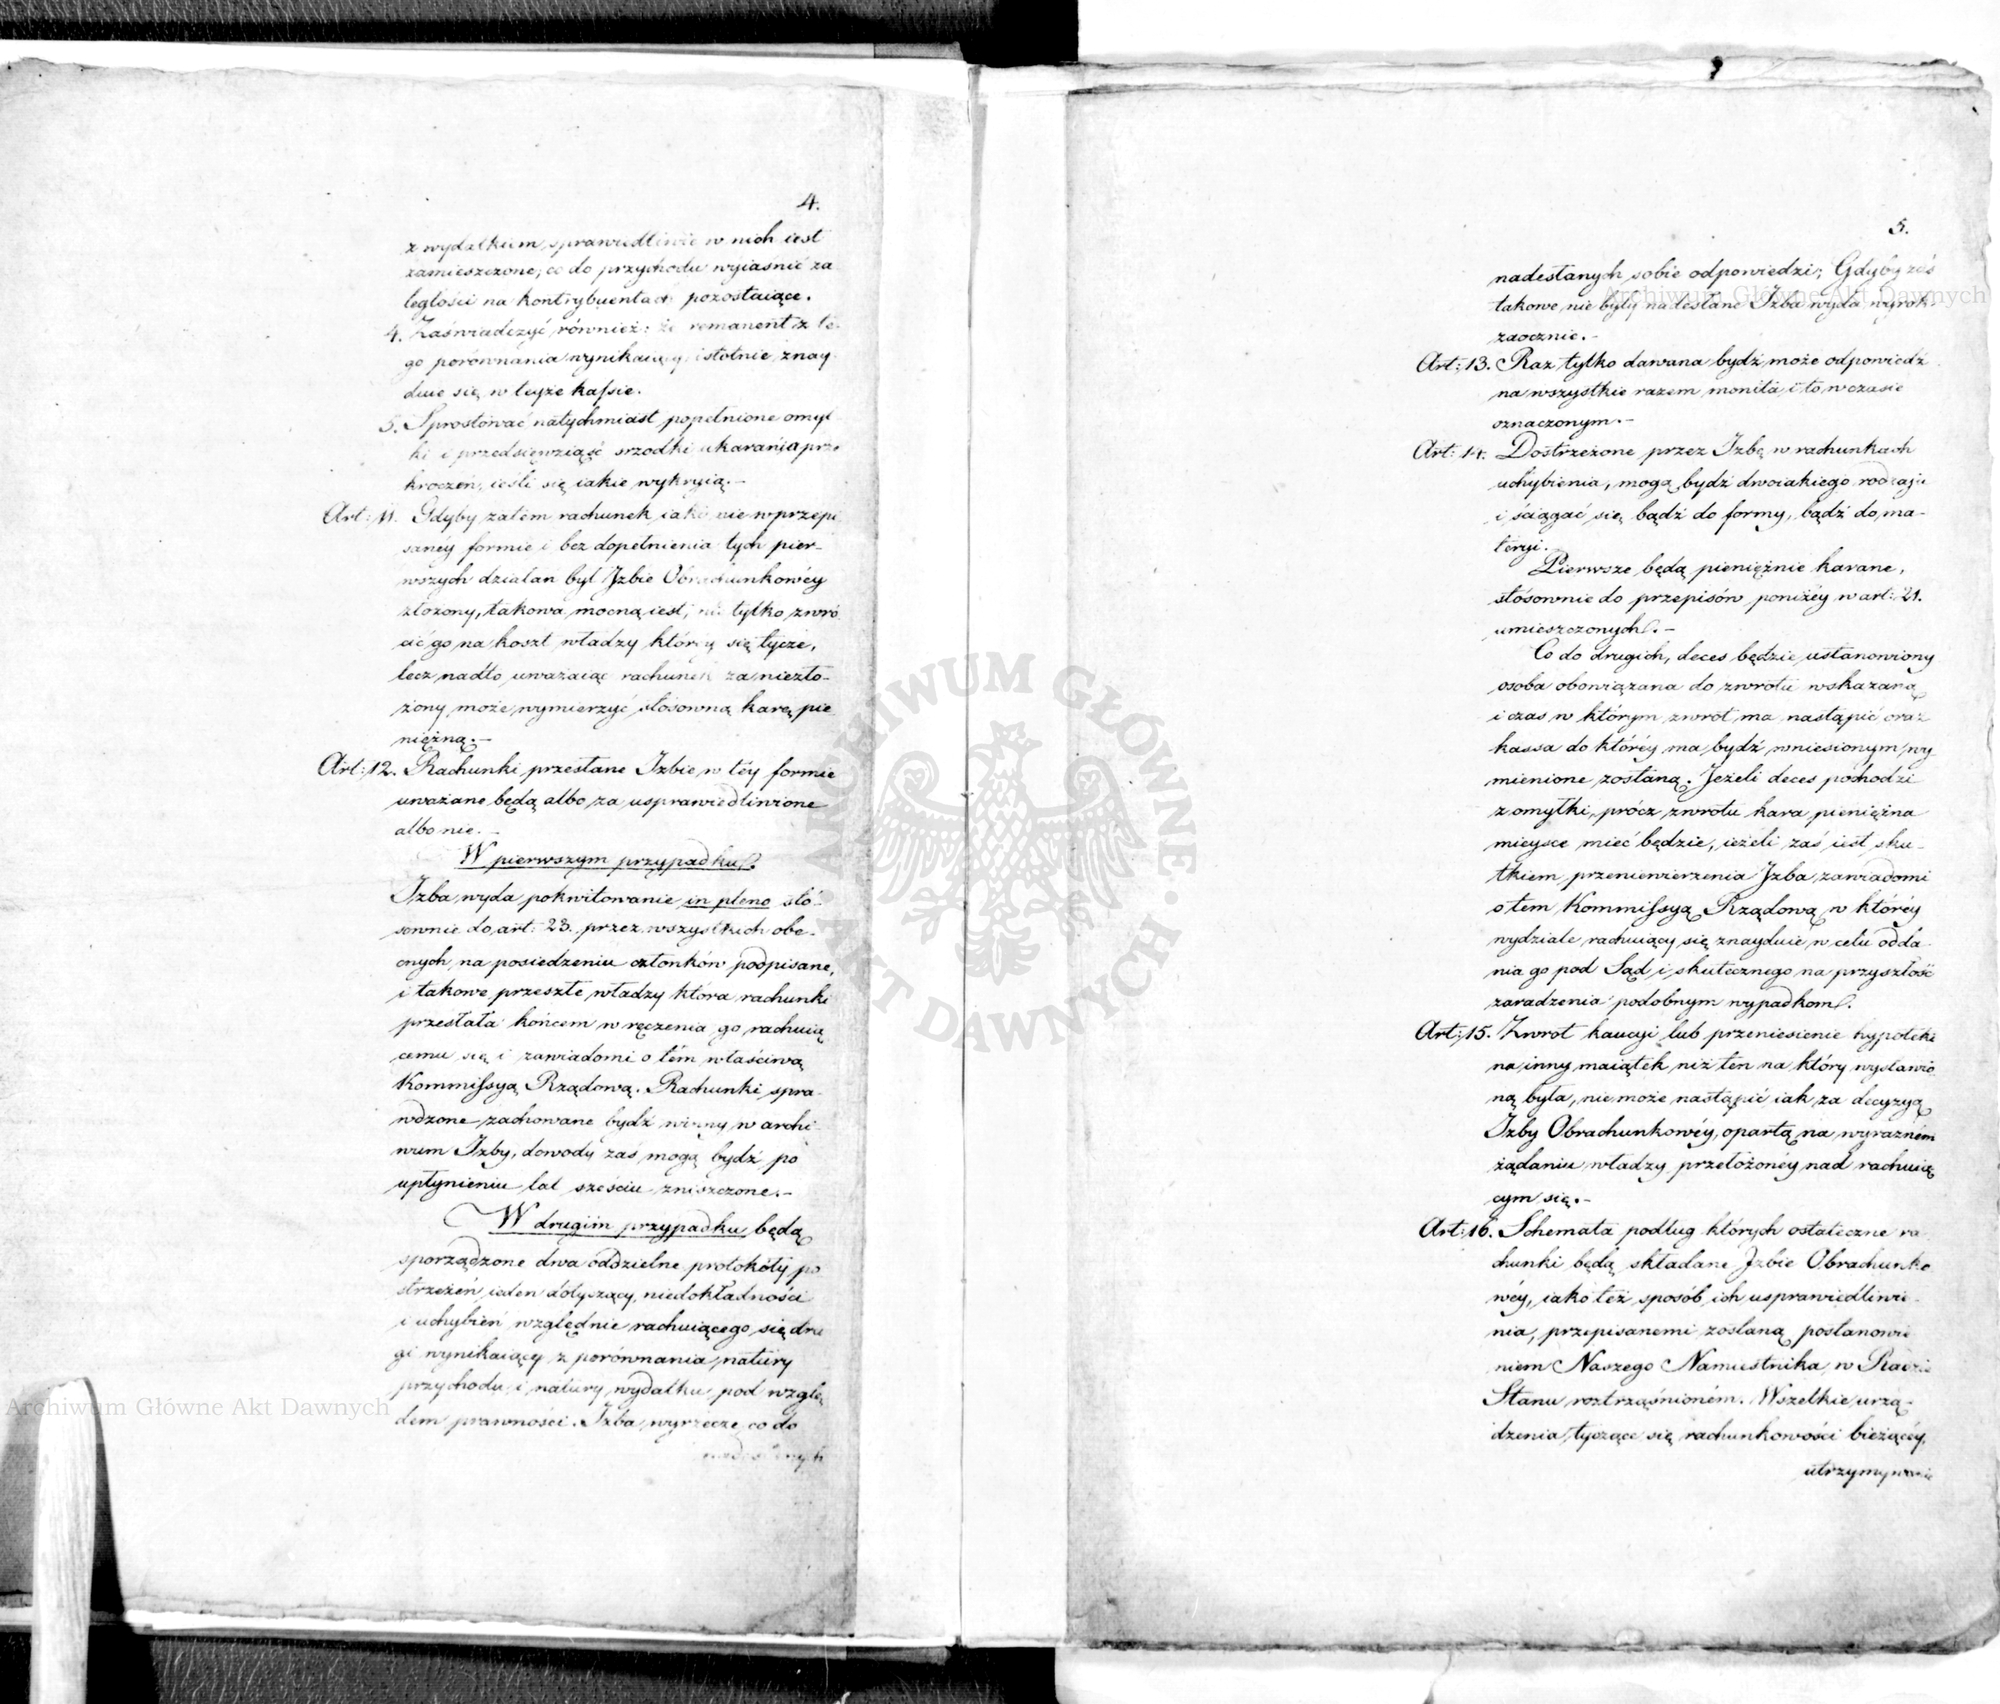 4.
z wydatkiem sprawiedliwie w nich iest
zamieszczone; co do przychodu wyiaśnić za
ległości na kontrybuentach pozostaiące.
4. Zaświadczyć również: że remanent z te-
go porównania wynikaiący istotnie znay-
duie się w teyże kassie.
5. Sprostować natychmiast popełnione omył-
ki i przedsięwziąść srzodki ukarania prze
kroczeń, ieśli się iakie wykryią.-
Art: 11. Gdyby zatem rachunek iaki nie w przepi
sanéy formie i bez dopełnienia tych pier-
wszych działan był Izbie Obrachunkowéy
złożony, takowa mocną iest, nie tylko zwró
cić go na koszt władzy którey się tycze,
lecz nadto uważaiąc rachunek za niezło-
żony może wymierzyć stósowną karę pie
niężną.-
Art: 12. Rachunki przesłane Izbie w téy formie
uważane będą albo za usprawiedliwione
albo nie.-
W pierwszym przypadku.
Izba wyda pokwitowanie in pleno stó-
sownie do art: 23. przez wszystkich obe-
cnych na posiedzeniu członków podpisane,
i takowe przeszle władzy która rachunki
przesłała końcem wręczenia go rachuią
cemu się i zawiadomi o tém właściwą
Kommissyą Rządową. Rachunki spra-
wdzone zachowane bydź winny w archi
wum Izby, dowody zaś mogą bydź po
upłynieniu lat sześciu zniszczone.-
W drugim przypadku będą
sporządzone dwa oddzielne protokóły po
strzeżeń ieden dotyczący niedokładności
i uchybień względnie rachuiącego się dru
gi wynikaiący z porównania natury
przychodu i natury wydatku pod wzglę
dem prawności. Izba wyrzecze co do
nadesłanych
5.
nadesłanych sobie odpowiedzi; Gdyby zaś
takowe nie były nadesłane Izba wyda wyrok
zaocznie.-
Art: 13. Raz tylko dawana bydź może odpowiedź
na wszystkie razem monita i to w czasie
oznaczonym.-
Art: 14. Dostrzeżone przez Izbę w rachunkach
uchybienia, mogą bydź dwoiakiego rodzaju
i ściągać się bądź do formy, bądź do ma-
teryi.
Pierwsze będą pieniężnie karane,
stósownie do przepisów poniżéy w art: 21.
umieszczonych.-
Co do drugich, deces będzie ustanowiony
osoba obowiązana do zwrotu wskazaną
i czas w którym zwrot ma nastąpić oraz
kassa do któréy ma bydź wniesionym wy
mienione zostaną. Jeżeli deces pochodzi
z omyłki, prócz zwrotu kara pieniężna
mieysce mieć będzie, ieżeli zaś iest sku-
tkiem przeniewierzenia Izba zawiadomi
o tem Kommissyą Rządową w któréy
wydziale rachuiący się znayduie w celu odda
nia go pod Sąd i skutecznego na przyszłość
zaradzenia podobnym wypadkom.
Art: 15. Zwrot kaucyi lub przeniesienie hypoteki
na inny maiątek niż ten na który wystawio
ną była, nie może nastąpić iak za decyzyą
Izby Obrachunkowéy, opartą na wyraźném
żądaniu władzy przełożonéy nad rachuią
cym się.-
Art: 16. Schemata podług których ostateczne ra
chunki będą składane Izbie Obrachunko
wéy, iako też sposób ich usprawiedliwie-
nia, przepisanemi zostaną postanowie
niem Naszego Namiestnika w Radzie
Stanu roztrząśnioném. Wszelkie urzą-
dzenia tyczące się rachunkowości bieżącéy,
utrzymywanie
Archiwum Główne Akt Dawnych
Archiwum Główne Akt Dawnych
ARCHIWUM GŁÓWNE · AKT DAWNYCH ·